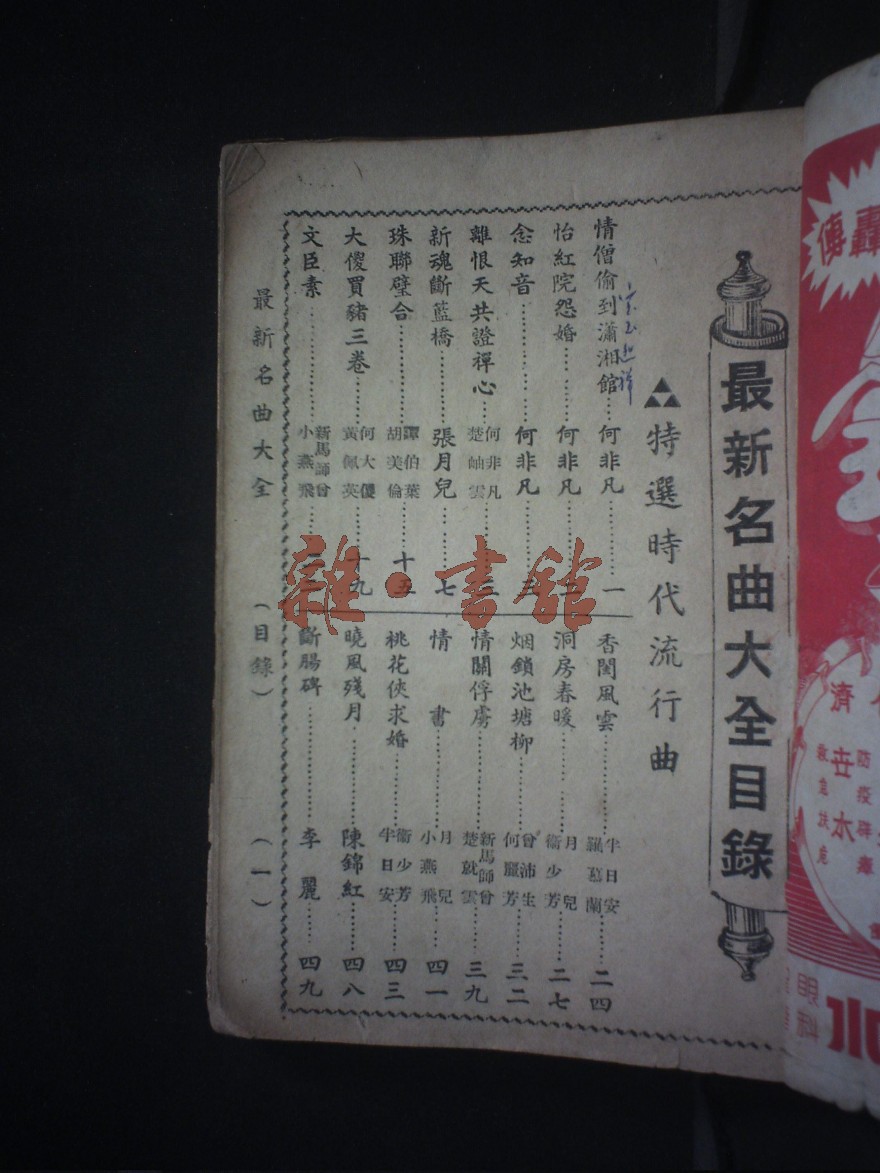 最新名曲大全目錄
特選時代流行曲
情僧偷到瀟湘館……何非凡……一
怡紅院怨婚……何非凡……
念知音……何非凡……三
離恨天共證禪心……何非凡 楚岫雲……三
新魂斷籃橋……張月兒……七
珠聯璧合……譚伯葉 胡美倫……十五
大傻買豬三卷……何大傻 黃佩英……十九
文臣素……新馬師曾 小燕飛……
香閨風雲……半日安 羅慕蘭……二四
洞房春暖……月兒 衞少芳……二七
烟鎖池塘柳……曾沛生 何麗芳……三二
情關俘虜……新馬師曾 楚岫雲……三九
情書……月兒 小燕飛……四一
桃花俠求婚……衞少芳 半日安……四三
曉風殘月……陳錦紅……四八
斷腸碑……李麗……四九
最新名曲大全 (目錄) (一)
雜·書館
轟傳
濟世水
眼科